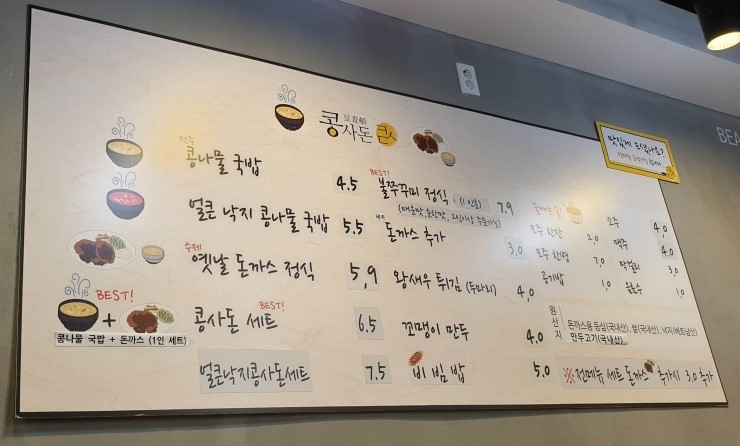 豆査頓
콩사돈 큰
맛있게 드셨나요?
BEA
전주
콩나물 국밥 4.5
얼큰 낙지 콩나물 국밥 5.5
수제
옛날 돈까스 정식 5,9
BEST!
콩나물 국밥 + 돈까스 (1인 세트)
BEST!
콩사돈 세트 6.5
얼큰낙지콩사돈세트 7.5
BEST!
불쭈꾸미 정식 (1인분) 7.9
세트
돈까스 추가 3,0
왕새우 튀김 (두마리) 4,0
꼬맹이 만두 4.0
비빔밥 5.0
모주 한잔 2,0
모주 한병 7,0
공기밥 1,0
소주 4,0
맥주 4,0
막걸리 3,0
음료수 1,0
원산지
돈까스용 등심(국내산), 쌀(국내산), 낙지(베트남산)
만두고기(국내산)
※ 전메뉴 세트 돈까스 추가시 3.0 추가